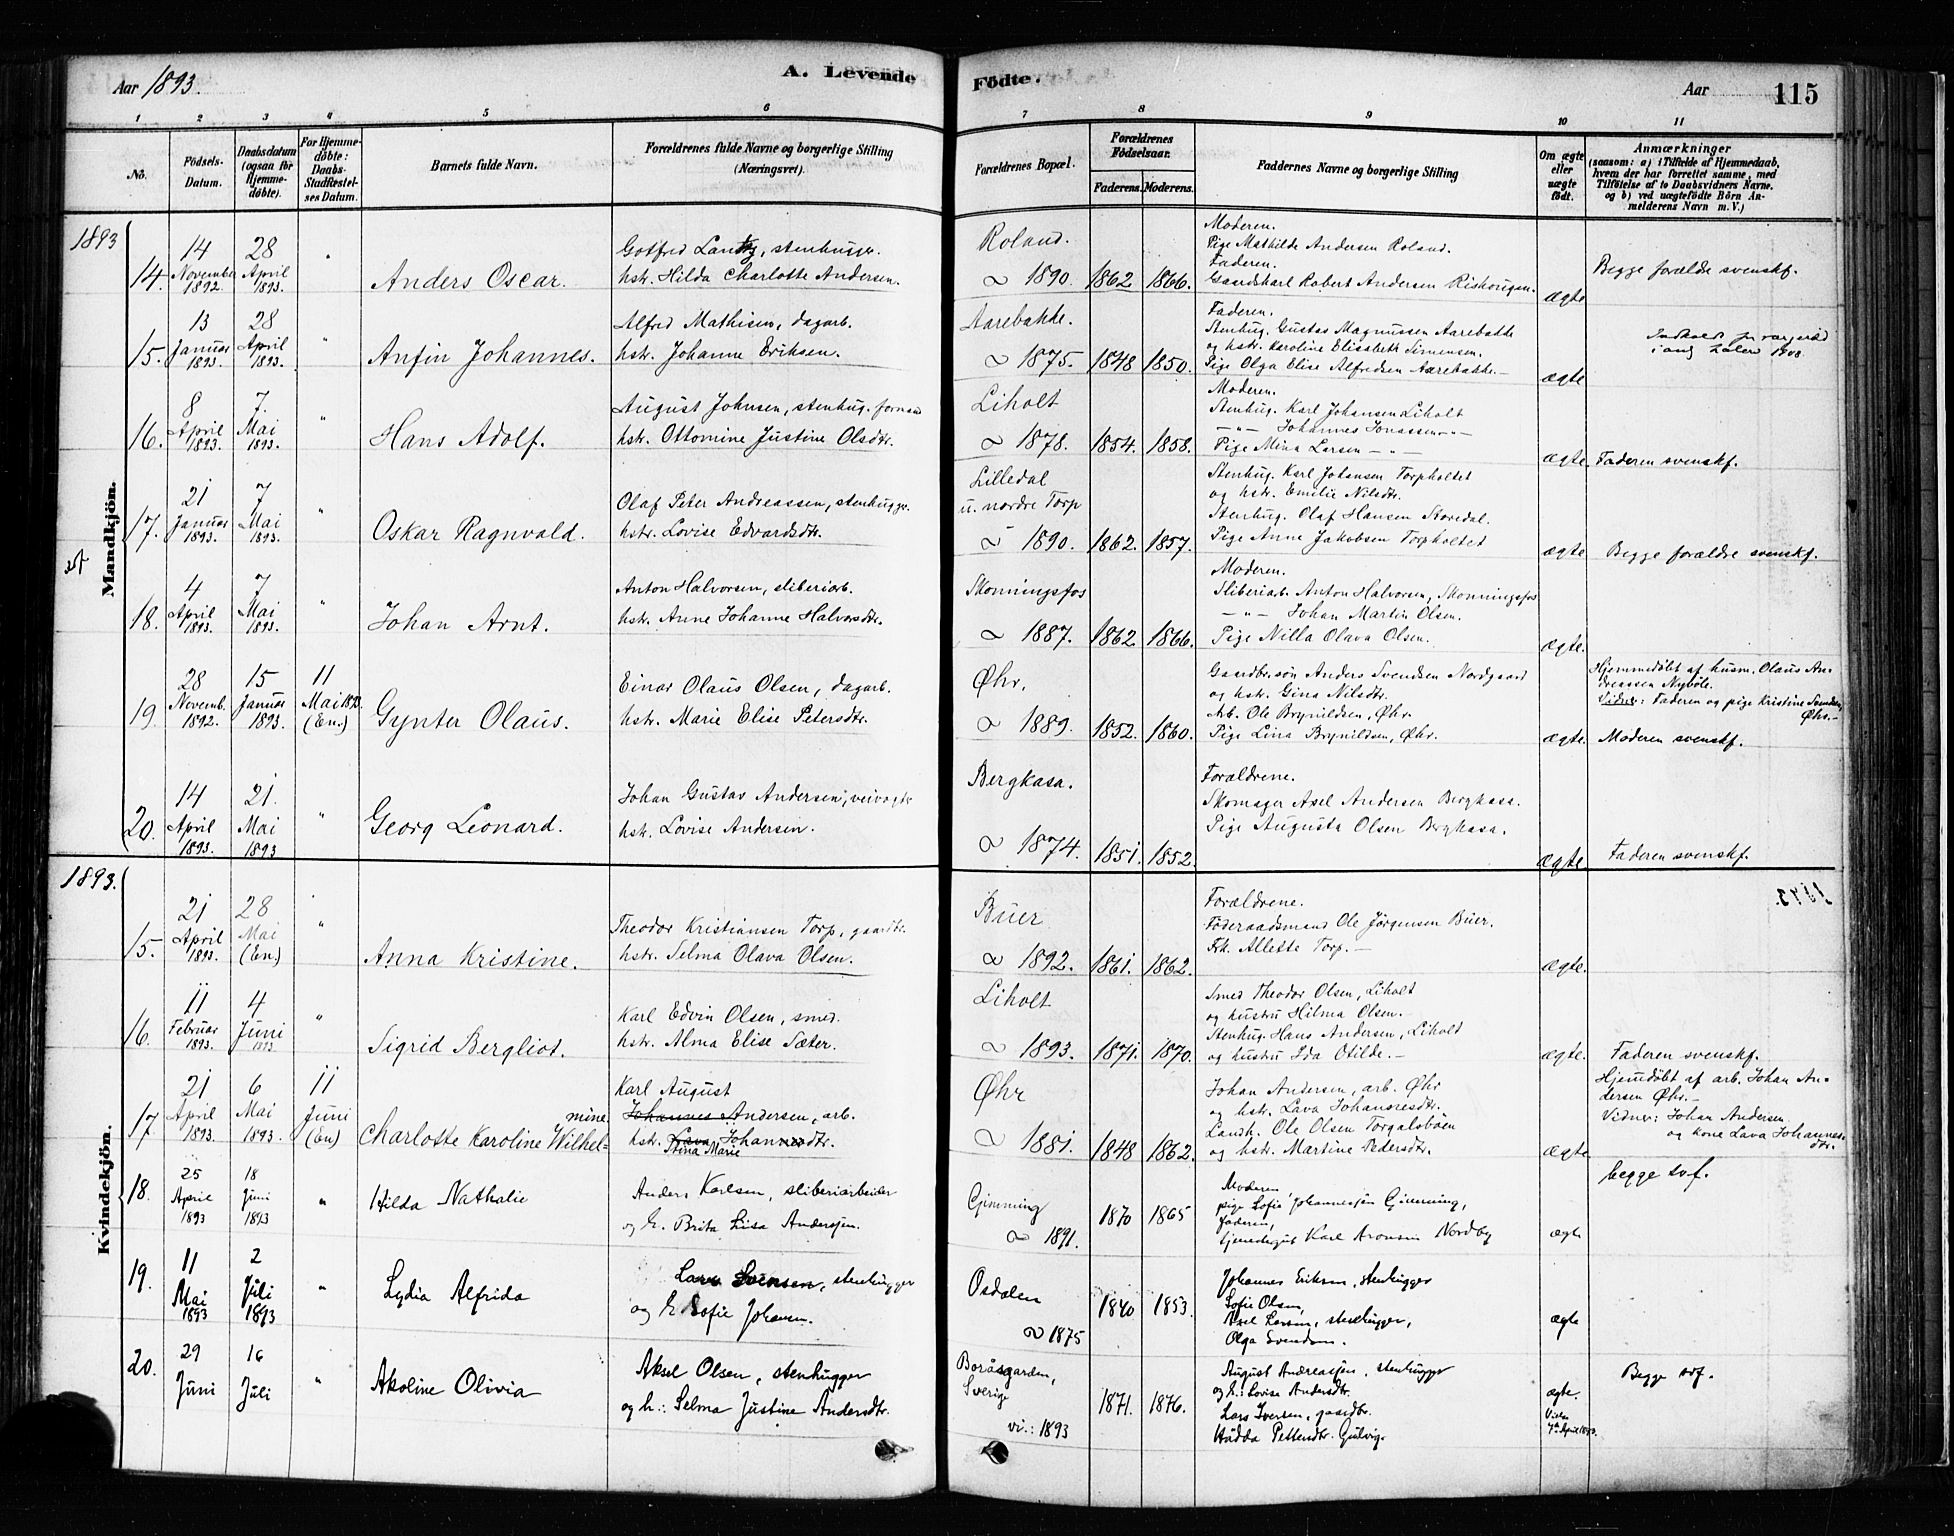 Aar 1893.
A. Levende
Fødte.
Aar
115
1 2 3 4 5 6
7 8 9 10 11
No.
Fødsels-
Datum.
Daabsdatum
(ogsaa for
Hjemme-
døbte).
For Hjemme-
døbte:
Daabs-
Stadfæstel-
ses Datum.
Barnets fulde Navn.
Forældrenes fulde Navne og borgerlige Stilling
(Næringsvei).
Forældrenes Bopæl.
Forældrenes
Fødselsaar.
Faderens. Moderens.
Faddernes Navne og borgerlige Stilling
Om ægte
eller
uægte
født.
Anmærkninger
(saasom: a) i Tilfælde af Hjemmedaab,
hvem der har forrettet samme, med
Tilføielse af to Daabsvidners Navne.
og b) ved uægtefødte Börn An-
melderens Navn m. V.)
Mandkjön.
1893
14.
14
November
1892.
28
April
1893.
"
Anders Oscar.
Gotfred, stenhugger.
hstr. Hilda Charlotte Andersen.
Roland.
1890. 1862 1866.
Moderen.
Pige Mathilde Andersen Roland.
Faderen.
Gaardskarl Robert Andersen
ægte
Begge forældre svenskf.
15.
13
Januar
1893.
28
April
1893.
"
Anfin Johannes.
Alfred Mathisen, dagarb.
hstr. Johanne Eriksen.
Aarebakke.
1875. 1848 1850.
Faderen.
Stenhug. Gustav Magnussen Aarebakke
og hstr. Karoline Elisabeth Simensen.
Pige Olga Elise Alfredsen Aarebakke.
ægte
16.
8
April
1893.
7
Mai
1893.
"
Hans Adolf.
August Johnsen, stenhug.
hstr. Ottomine Justine Olsdtr.
Liholt
1878. 1854. 1858.
Moderen.
Stenhug. Karl Johansen Liholt
— " — Johannes Jonassen — " —
Pige Mina Larsen — " —
ægte.
Faderen svenskf.
17.
21
Januar
1893.
7
Mai
1893.
"
Oskar Ragnvald.
Olaf Peter Andreassen, stenhugger.
hstr. Lovise Edvardsdtr.
Lilledal
u. nordre Torp
1890. 1862. 1857.
Stenhug. Karl Johansen Torpholtet
og hstr. Emilie Nilsdtr.
Stenhug. Olaf Hansen Skoredal.
Pige Anne Jakobsen Torpholtet
ægte
Begge forældre svenskf.
18.
4
April
1893.
7
Mai
1893.
"
Johan Arnt.
Anton Halvorsen, sliberiarb.
hstr. Anne Johanne Halvorsdtr.
Skonningsfos
1887. 1862. 1866.
Moderen.
Sliberiarb. Anton Halvorsen, Skonningsfos
— " — Johan Martin Olsen.
Pige Nilla Olava Olsen.
ægte.
19.
28
Novemb.
1892.
15
Januar
1893.
11
Mai 1893.
(En.)
Gynter Olaus.
Einar Olaus Olsen, dagarb.
hstr. Marie Elise Petersdtr.
Øhr.
1889. 1852. 1860.
Gaardbr.søn Anders Svendsen Nordgaard
og hstr. Gina Nilsdtr.
Arb. Ole Brynildsen, Øhr.
Pige Lina Brynildsen, Øhr.
ægte.
Hjemmedøbt af husm. Olaus An-
dreassen Nybøle.
Vidner: Faderen og pige Kristine Svendsen
Øhr.
Moderen svenskf.
20.
14
April
1893.
21.
Mai
1893
"
Georg Leonard.
Johan Gustav Andersen, veivogter
hstr. Lovise Andersen.
Bergkasa.
1874. 1851. 1852.
Forældrene.
Skomager Axel Andersen Bergkasa.
Pige Augusta Olsen Bergkasa.
ægte.
Faderen svenskf.
Kvindekjön.
1893.
15.
21
April
1893.
28
Mai
(En.)
"
Anna Kristine.
Theodor Kristiansen Torp, gaardbr.
hstr. Selma Olava Olsen.
Buer
1892. 1861. 1862.
Forældrene.
Føderaadsmand Ole Jørgensen Buer.
Frk. Allette Torp.
ægte.
16.
11
Februar
1893.
4
Juni
1893.
"
Sigrid Bergliot.
Karl Edvin Olsen, smed.
hstr. Alma Elise Sæter.
Liholt
1893. 1871. 1870.
Smed Theodor Olsen, Liholt
og hustru Hilma Olsen.
Stenhug. Hans Andersen, Liholt
og hustru Ida Otilde.
ægte.
Faderen svenskf.
17.
21
April
1893.
6
Mai
1893.
11
Juni
(En)
mine.
Charlotte Karoline Wilhel=
Karl August
Johannes Andersen, arb.
hstr. Lava Johannesdtr.
Stina Marie
Øhr
1881. 1848 1862.
Johan Andersen, arb. Øhr
og hstr. Lava Johannesdtr.
Landh. Ole Olsen Torgalsbøen
og hstr. Martine Pedersdtr.
ægte
Hjemdøbt af arb. Johan An-
dersen Øhr.
Vidner: Johan Andersen
og kone Lava Johannes-
dtr.
begge svf.
18.
25
April
1893
18
Juni
1893
"
Hilda Nathalie
Anders Karlsen, sliberiarbeider
og h. Brita Lisa Andersen.
Gjemming
1891. 1870 1865
Moderen
pige Sofie Johannesen Gjemming,
Faderen,
tjenestegut Karl Aronsen Nordby
ægte
19.
11
Mai
1893
2
Juli
1893
"
Lydia Alfrida
Lars Svensen, stenhugger
og h. Sofie Johansen.
Osdalen
1875 1840 1853.
Johannes Eriksen, stenhugger
Sofie Olsen,
Axel Larsen, stenhugger,
Olga Svendsen.
ægte
20.
29
Juni
16
Juli
"
Akoline Olivia
Aksel Olsen, stenhugger
og h.: Selma Justine Andersdtr.
Boråsgarden,
Sverige
vi.: 1893 1871. 1876.
August Andreassen, stenhugger
og h.: Lovise Andersdtr.
Lars Iversen, gaardbr.
Hådda Pettersdtr. Gulvig.
ægte.
Begge svf.